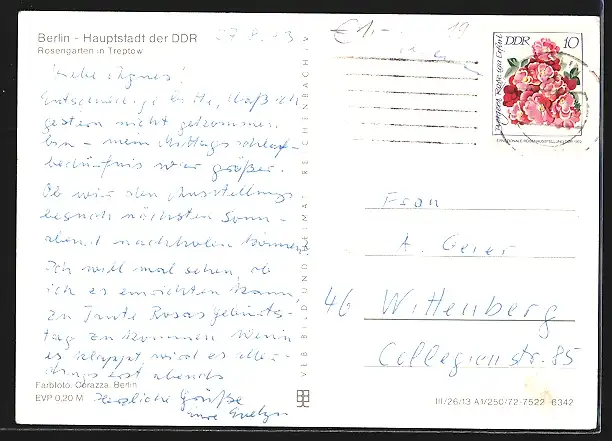 Berlin - Hauptstadt der DDR
Rosengarten in Treptow
Liebe Agnes!
Entschuldige bitte, daß ich
gestern nicht gekommen
bin - mein Mittagsschlaf-
bedürfnis war größer.
Ob wir den Ausstellungs-
besuch nächsten Sonn-
abend nachholen können?
Ich will mal sehen, ob
ich es einrichten kann,
zu Tante Rosas Geburts-
tag zu kommen. Wenn
es klappt, wird es aller-
dings erst abends
Herzliche Grüße
Evelyn
Farbfoto: Gerazza, Berlin
EVP 0,20 M
VEB BILD UND HEIMAT REICHENBACH i. V
€ 1,-
19
DDR 10
Frau
A. Geier
46 Wittenberg
Collegienstr. 85
III/26/13 A1/250/72-7522 6342